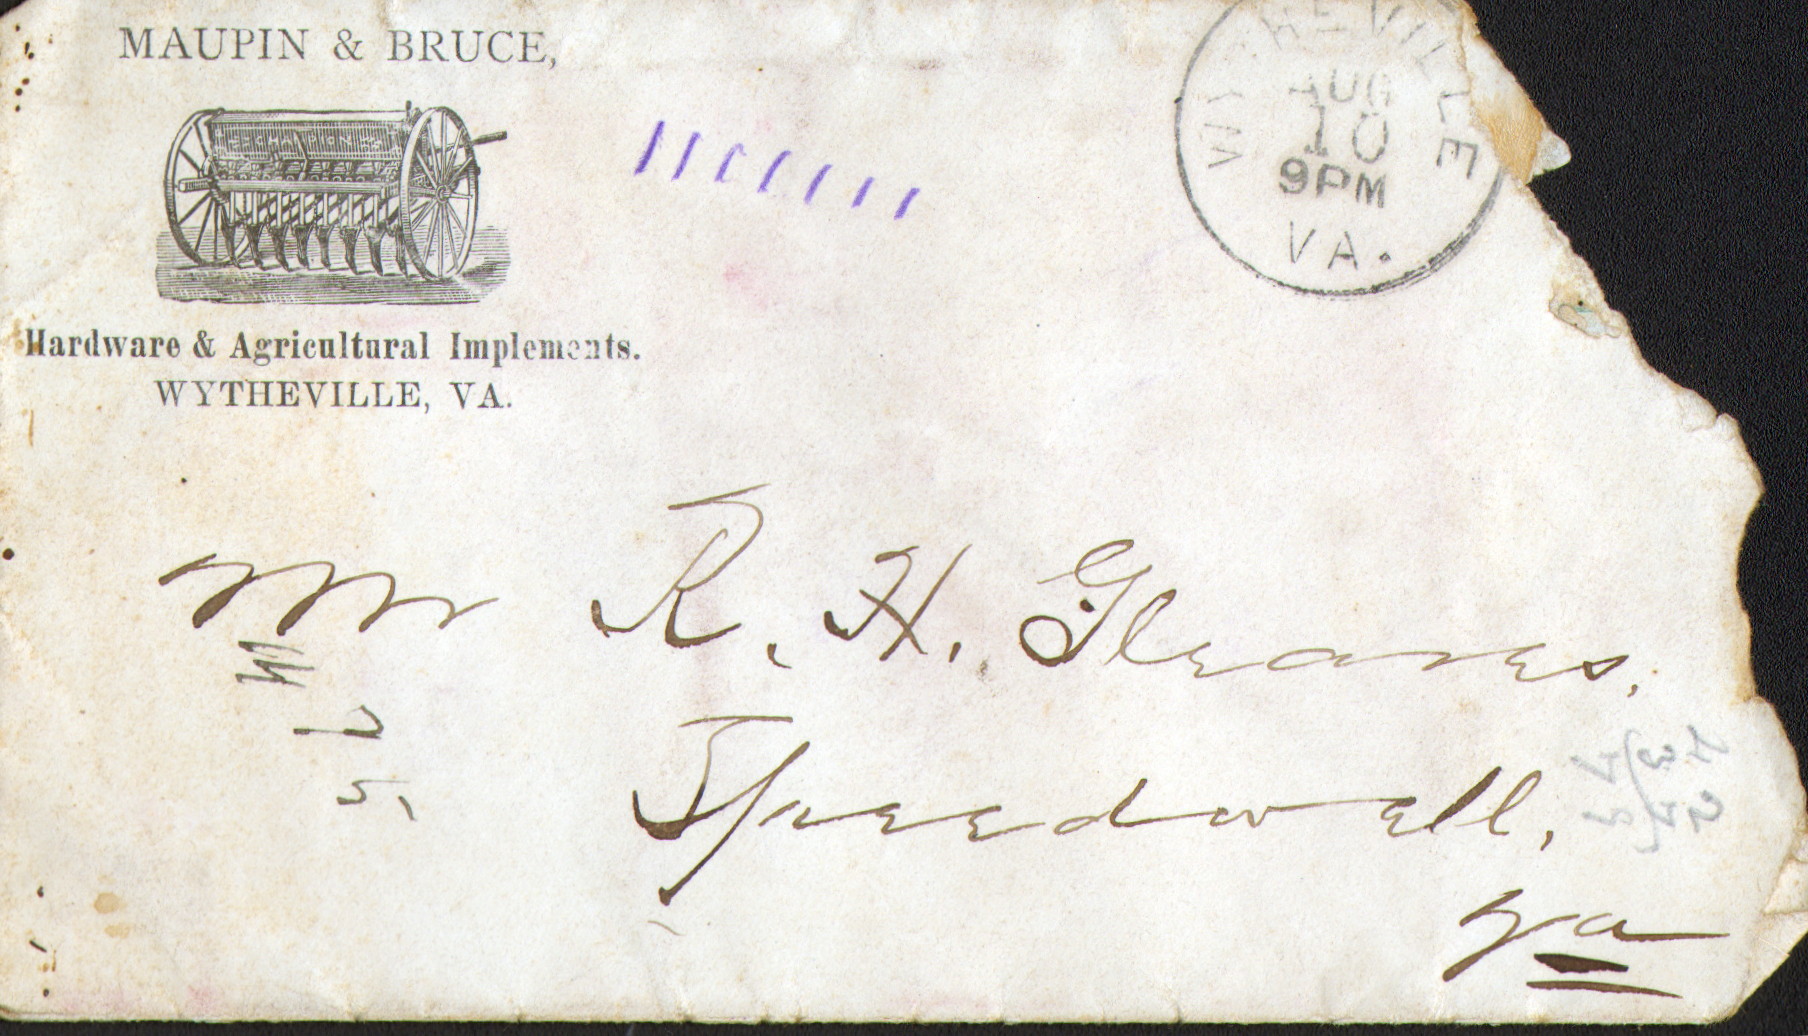 MAUPIN & BRUCE,
Hardware & Agricultural Implements.
WYTHEVILLE, VA.
WYTHEVILLE
AUG
10
9PM
VA.
Mr R. H. Gleaves.
Speedwell,
Va